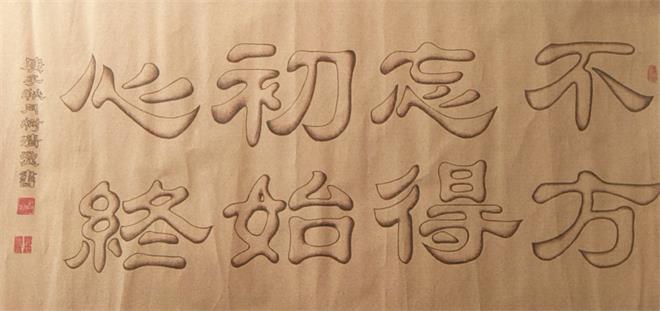 不忘初心
方得始終
庚子秋月書